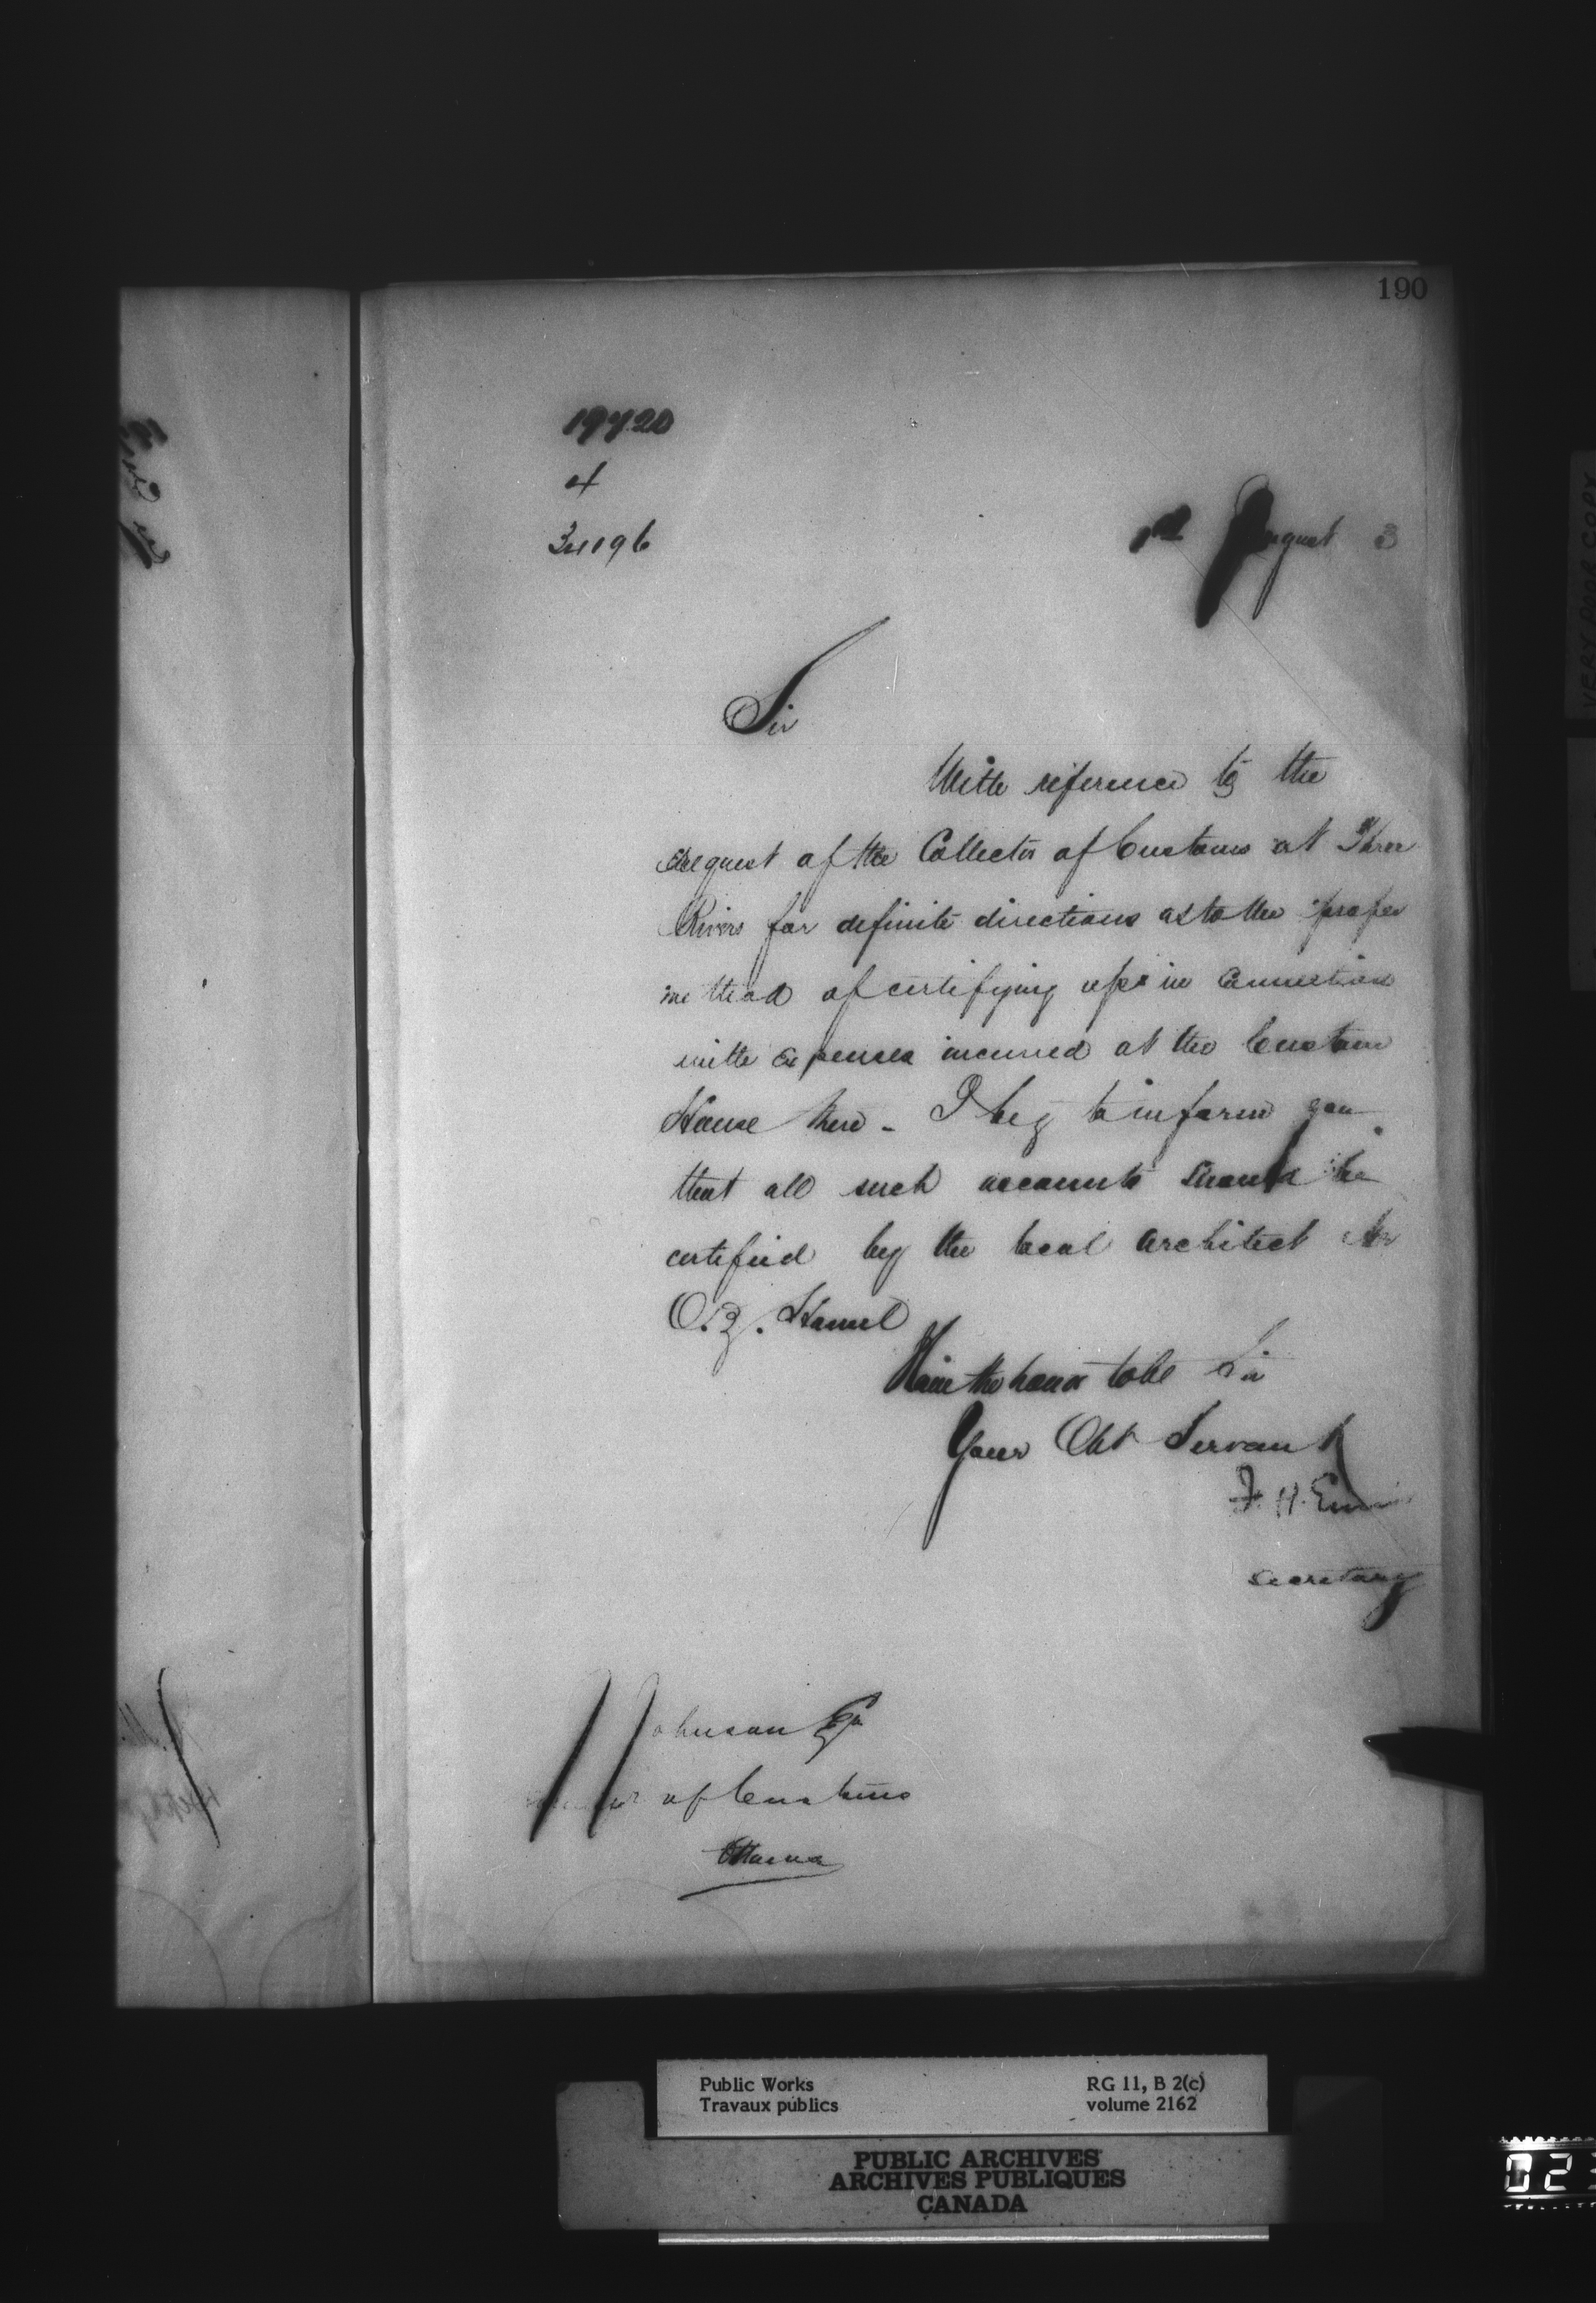 190
19720
34196
1st August 3
Sir
With reference to the
request of the Collector of Customs at Three
Rivers for definite directions as to the proper
method of certifying in connection
with expenses incurred at the Custom
House there - I beg to inform you
that all such accounts should be
certified by the local architect Mr
O.Z. Hamel
Have the honor to be Sir
Your Obt Servant
F. H. Ennis
Secretary
J Johnson Esq
of Customs
Ottawa
Public Works
Travaux publics
RG 11, B 2(c)
volume 2162
PUBLIC ARCHIVES
ARCHIVES PUBLIQUES
CANADA
VERY POOR COPY